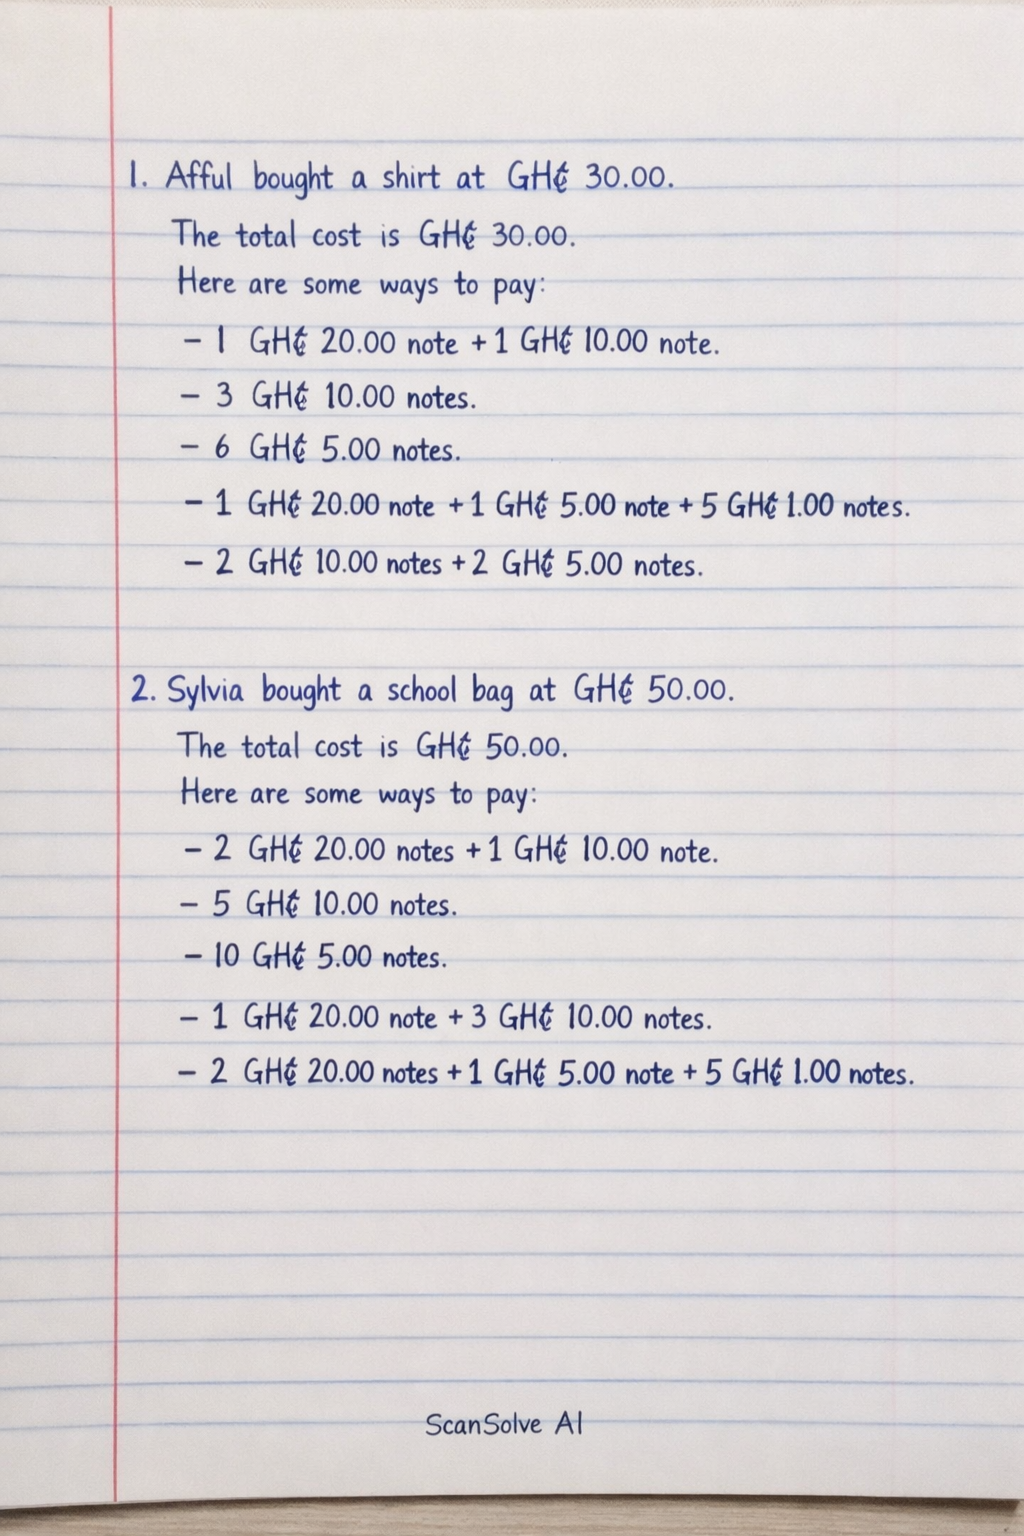 1. Afful bought a shirt at GH₵ 30.00.
The total cost is GH₵ 30.00.
Here are some ways to pay:
– 1 GH₵ 20.00 note + 1 GH₵ 10.00 note.
– 3 GH₵ 10.00 notes.
– 6 GH₵ 5.00 notes.
– 1 GH₵ 20.00 note + 1 GH₵ 5.00 note + 5 GH₵ 1.00 notes.
– 2 GH₵ 10.00 notes + 2 GH₵ 5.00 notes.
2. Sylvia bought a school bag at GH₵ 50.00.
The total cost is GH₵ 50.00.
Here are some ways to pay:
– 2 GH₵ 20.00 notes + 1 GH₵ 10.00 note.
– 5 GH₵ 10.00 notes.
– 10 GH₵ 5.00 notes.
– 1 GH₵ 20.00 note + 3 GH₵ 10.00 notes.
– 2 GH₵ 20.00 notes + 1 GH₵ 5.00 note + 5 GH₵ 1.00 notes.
ScanSolve AI